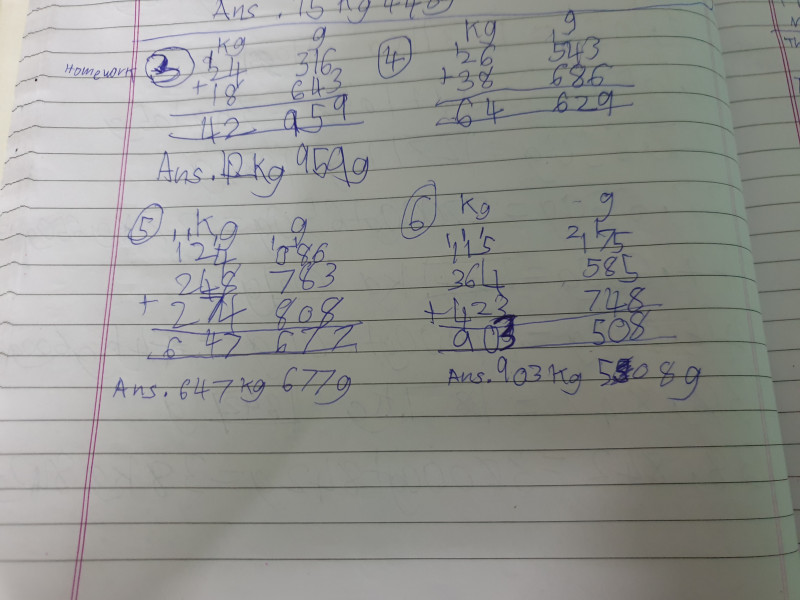 Ans. 15 Kg 448g
Homework
3 Kg g
24 316
+18 643
42 959
Ans. 42 Kg 959g
4 Kg g
26 543
+38 686
64 629
5 Kg g
124 086
248 783
+ 274 808
647 677
Ans. 647 Kg 677g
6 Kg g
115 175
364 585
+423 748
903 508
Ans. 903 Kg 508g